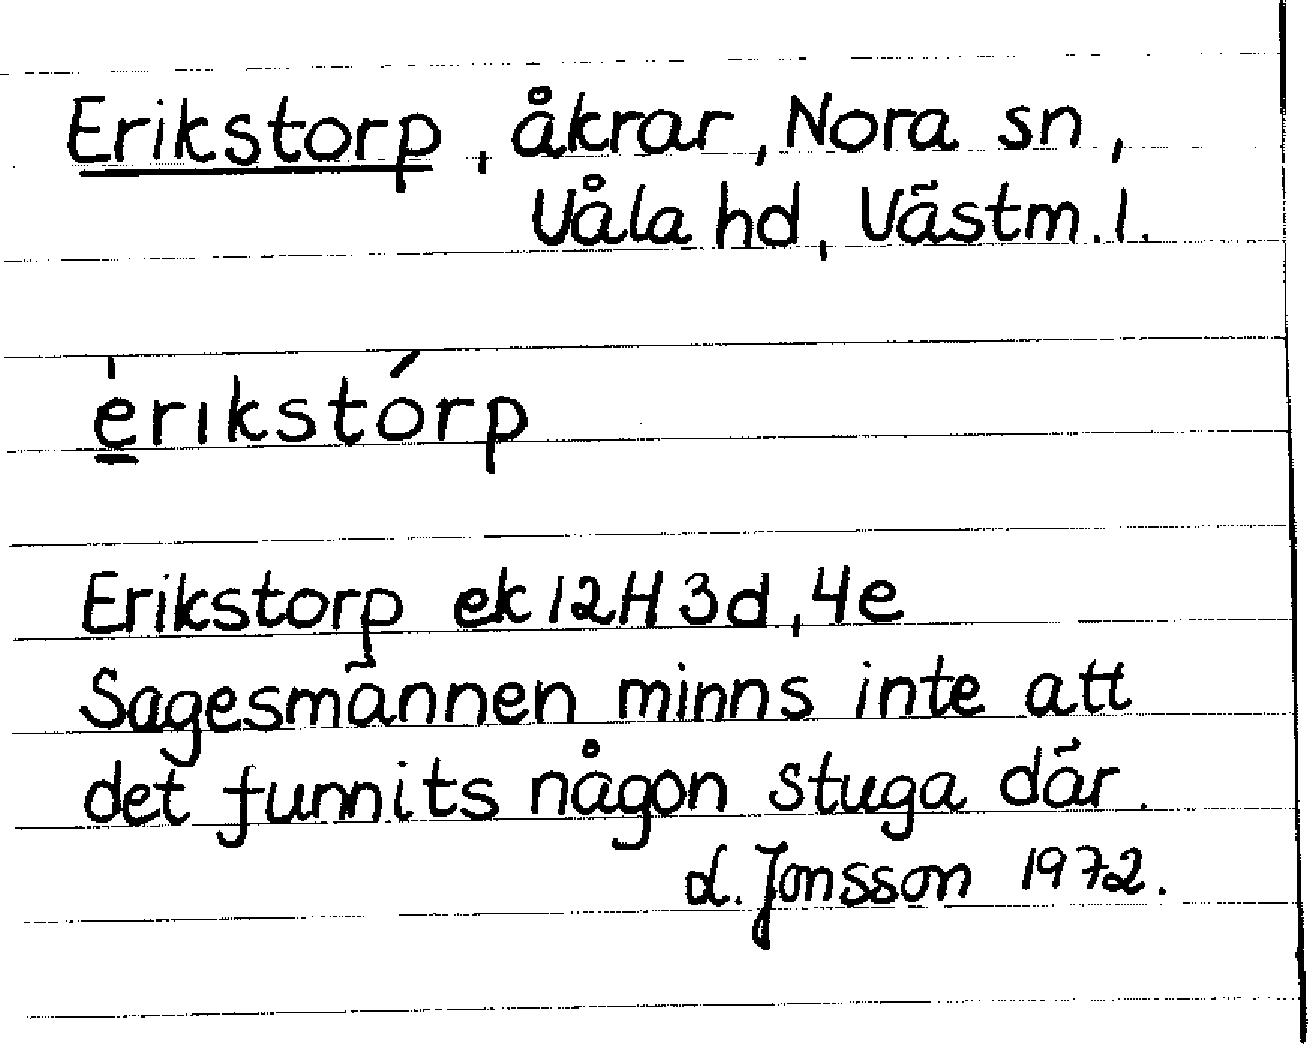 Erikstorp, åkrar, Nora sn,
Våla hd, Västm.l.
e̲̍rıkstórp
Erikstorp ek 12H 3d, 4e
Sagesmännen minns inte att
det funnits någon stuga där.
d. Jonsson 1972.